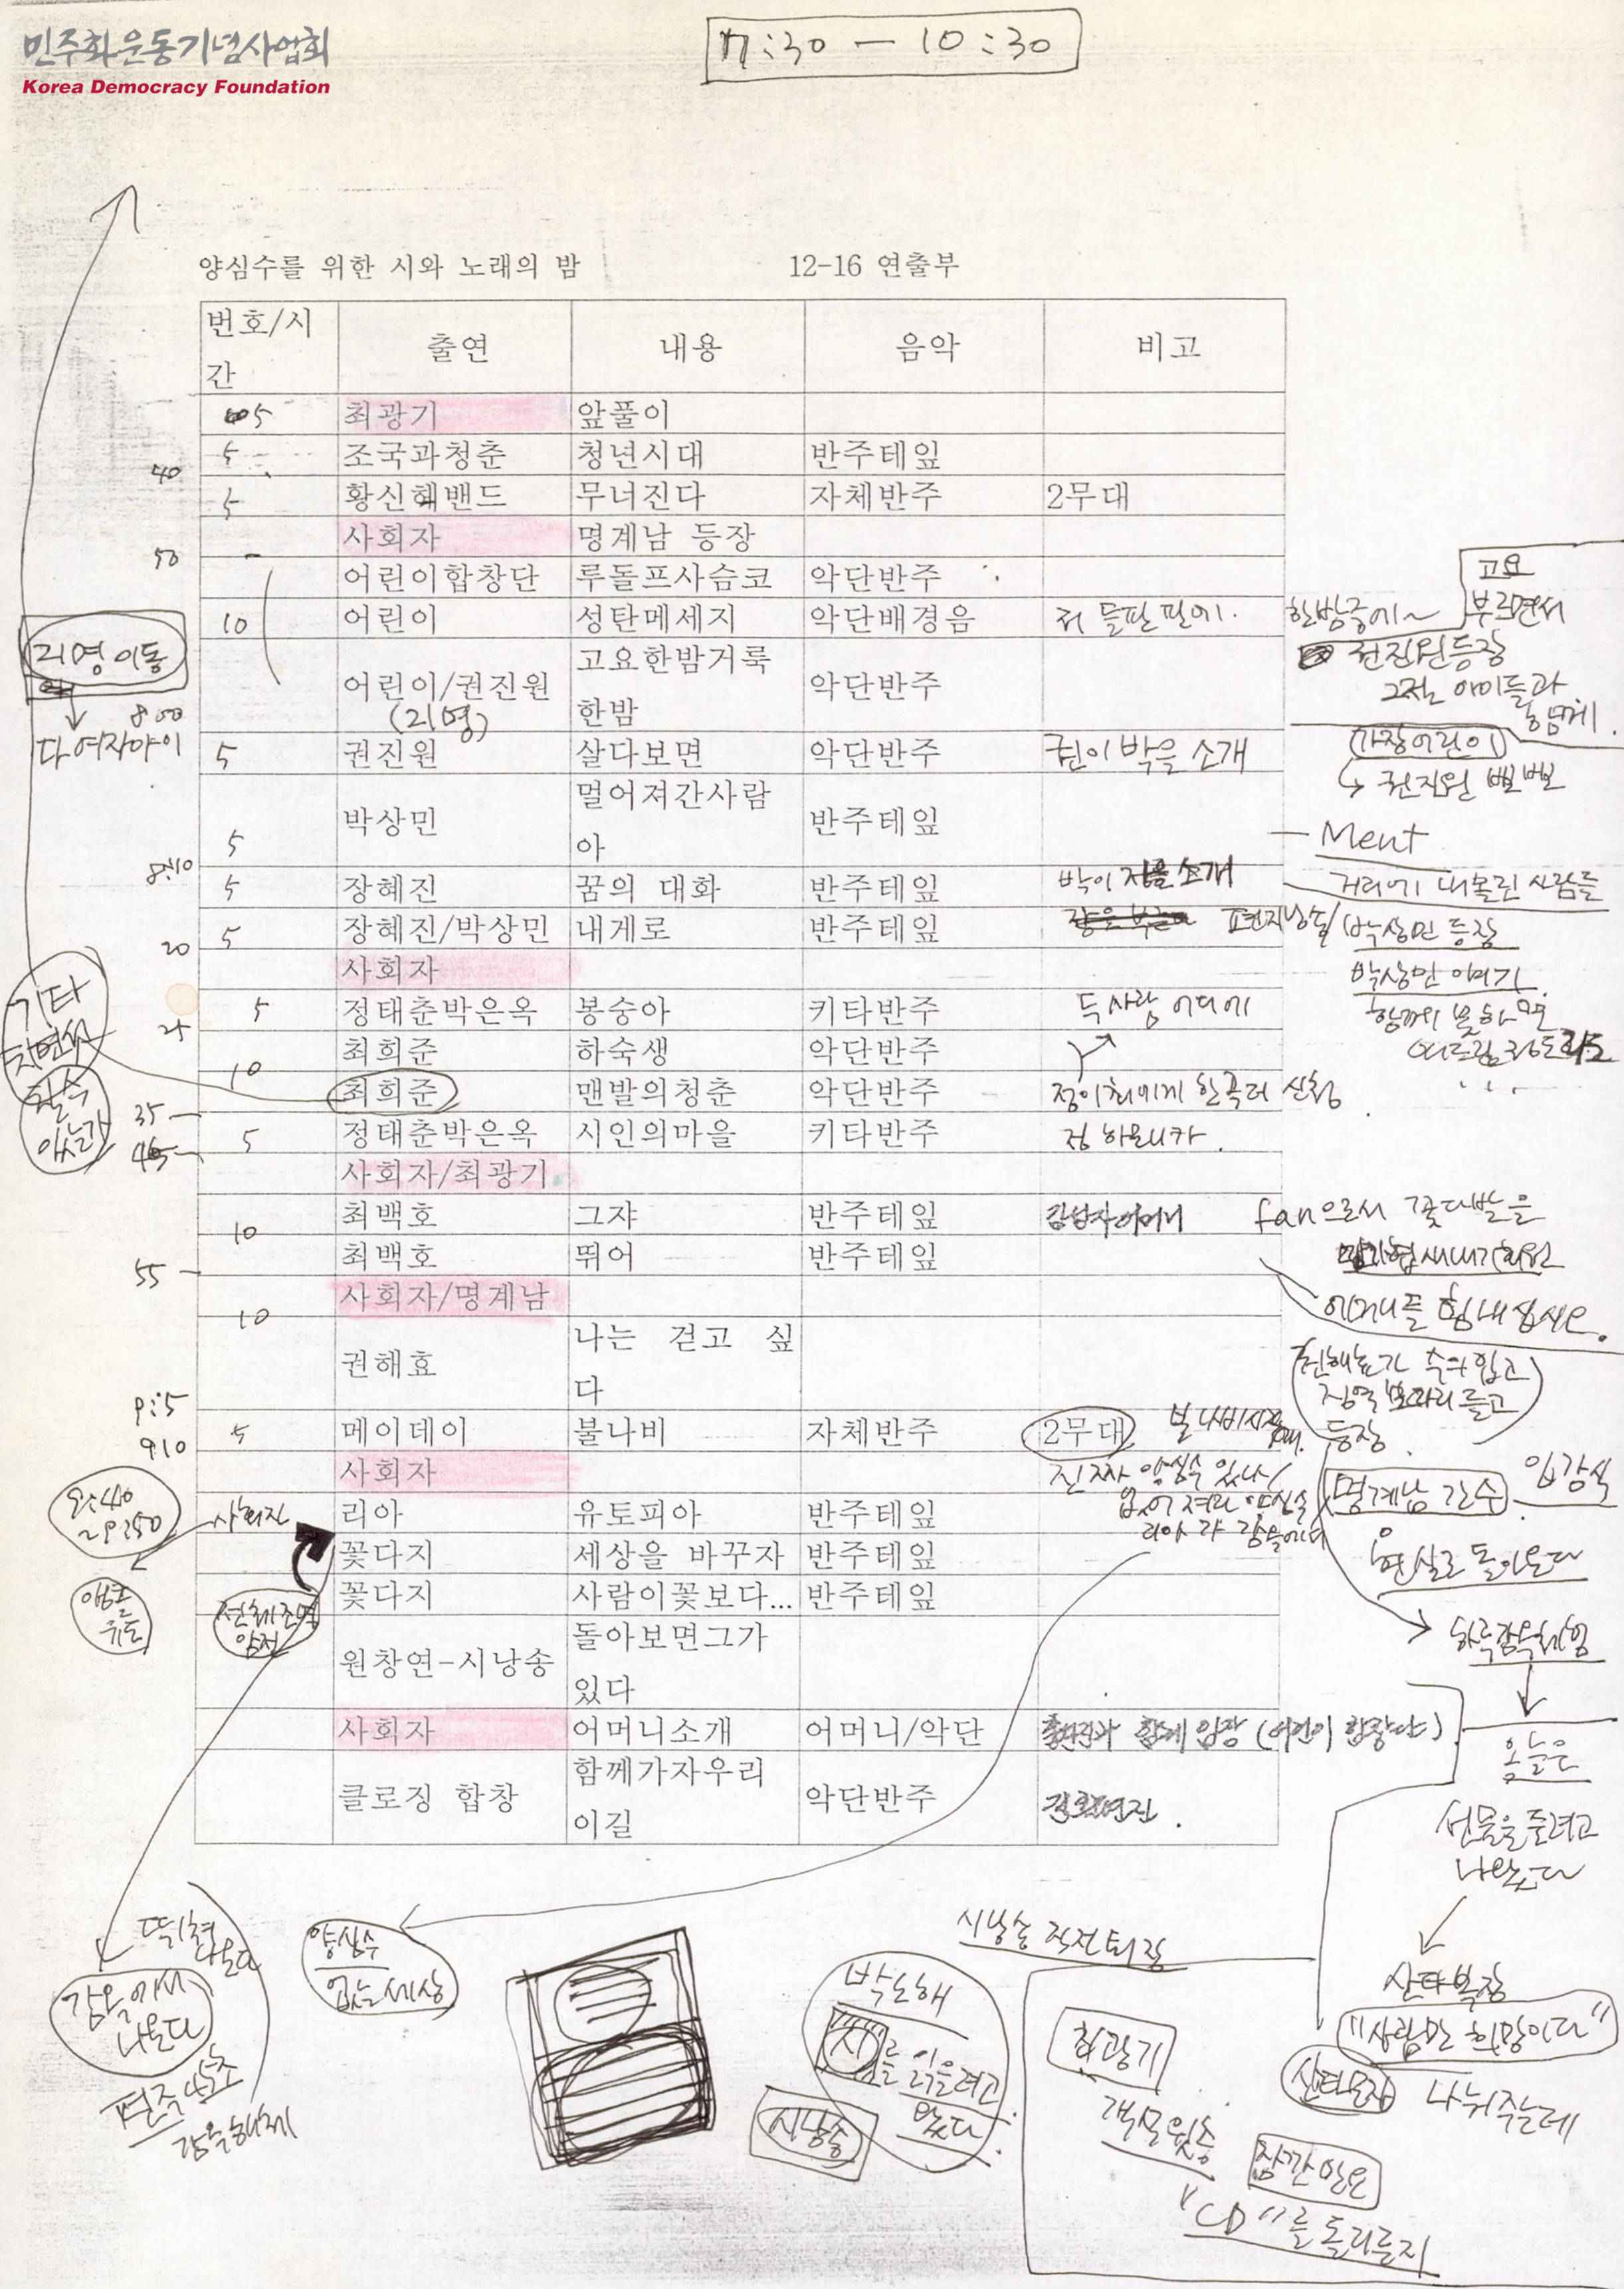 민주화운동기념사업회
Korea Democracy Foundation
7:30 — 10:30
양심수를 위한 시와 노래의 밤 12-16 연출부
번호/시간 출연 내용 음악 비고
5 최광기 앞풀이
5 조국과청춘 청년시대 반주테잎
40
5 황신혜밴드 무너진다 자체반주 2무대
사회자 명계남 등장
50
어린이합창단 루돌프사슴코 악단반주
10 어린이 성탄메세지 악단배경음 저 들판 밖에.
한밤중에~
고요
부르면서
권진원등장
그전는 아이들과
함께.
리영 이동
어린이/권진원 고요한밤거룩한밤 악단반주
(리영)
8:00
다 여자아이
5 권진원 살다보면 악단반주 권이 박을 소개
가장어린이
↳ 권진원 뽀뽀
5 박상민 멀어져간사람아 반주테잎
— Ment
8:10
5 장혜진 꿈의 대화 반주테잎 박이 장을 소개
거리에 내몰린 사람들
5 장혜진/박상민 내게로 반주테잎 편지낭송/박상민 등장
20
사회자
박상민 이야기
함께 못하면
5 정태춘박은옥 봉숭아 키타반주 두사람 어디에
25
최희준 하숙생 악단반주
10
최희준 맨발의청춘 악단반주 정이 최에게 한곡더 신청
기타
35
5 정태춘박은옥 시인의마을 키타반주 정 하모니카
45
사회자/최광기
최백호 그쟈 반주테잎
10
fan으로서 꽃다발을
최백호 뛰어 반주테잎
새내기회원
55
사회자/명계남
10
어머니들 힘내십시오.
권해효 나는 걷고 싶다
권해효가 수의입고
징역보따리 들고
등장.
9:5
5 메이데이 불나비 자체반주 2무대
9:10
사회자
진짜 양심수 있나/
명계남 간수
입감식
사회자 리아 유토피아 반주테잎
꽃다지 세상을 바꾸자 반주테잎
현실로 돌아온다
꽃다지 사람이꽃보다... 반주테잎
앵콜
유도
전체조명
암전
하루감옥체험
원창연-시낭송 돌아보면그가있다
사회자 어머니소개 어머니/악단 출연진과 함께 입장 (어린이 합창단)
오늘은
클로징 합창 함께가자우리이길 악단반주
선물을 돌려고
나왔다
산타복장
"사람만 희망이다"
나눠주는데
시낭송 직전퇴장
나온다
감옥에서
나온다
감옥해체
양심수
없는세상
박노해
시를 읽을려고
왔다.
시낭송
최광기
잠깐만요
"CD"를 돌리든지